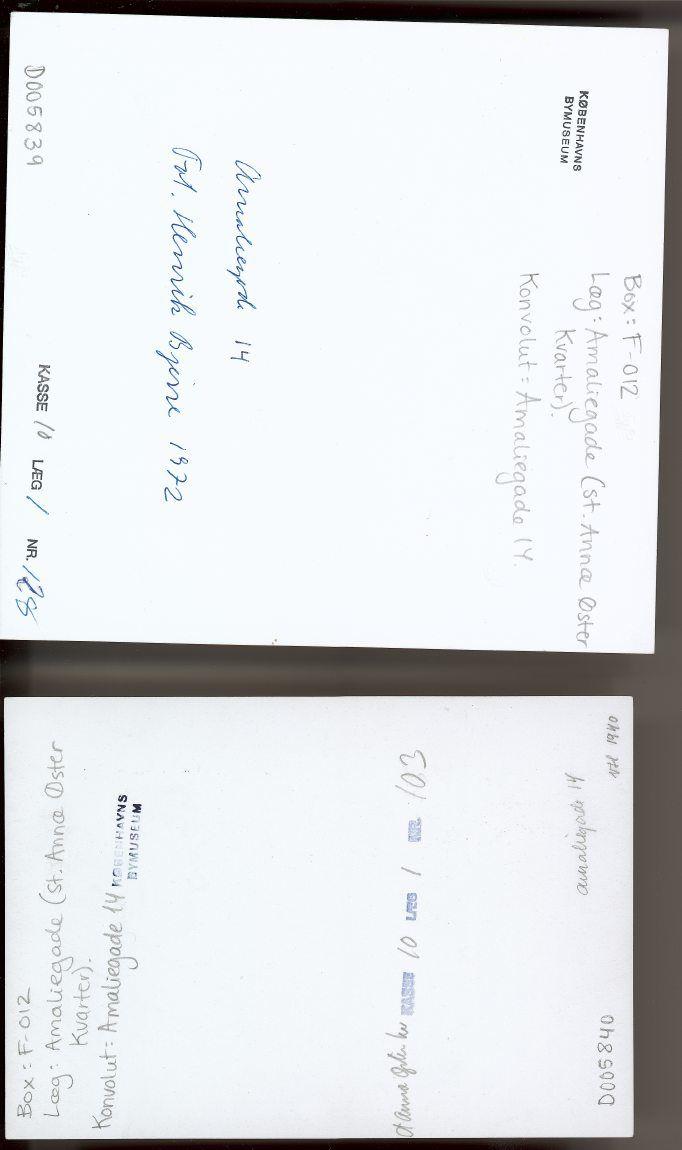 KØBENHAVNS
BYMUSEUM
Box: F-012
Læg: Amaliegade (St. Annæ Øster
Kvarter).
Konvolut: Amaliegade 14.
Amaliegade 14
Fot. Henrik Bjerre 1972
D005839
KASSE 10 LÆG 1 NR. 128
Box: F-012
Læg: Amaliegade (St. Annæ Øster
Kvarter).
Konvolut: Amaliegade 14
KØBENHAVNS
BYMUSEUM
St Anna Øster kv KASSE 10 LÆG 1 NR. 103
Amaliegade 14
1940
D005840